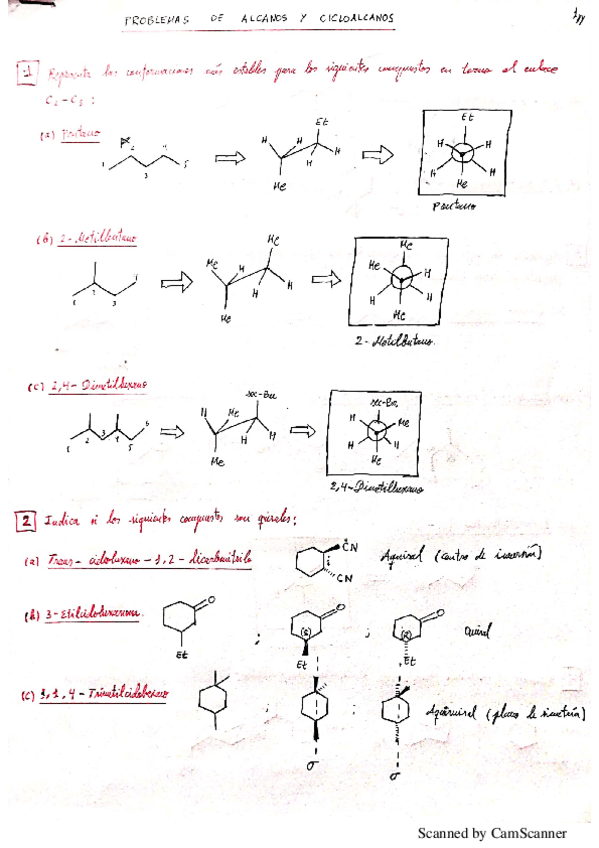 PROBLEMAS DE ALCANOS Y CICLOALCANOS
1 Representa las conformaciones más estables para los siguientes compuestos en torno al enlace
C2-C3:
(a) Pentano
1 2 3 4 5
H H Me Et H H
Et H H H H Me
Pentano
(b) 2-Metilbutano
1 2 3 4
Me H Me Me H H
Me Me H H H Me
2-Metilbutano.
(c) 2,4-Dimetilhexano
1 2 3 4 5 6
H Me Me sec-Bu H H
sec-Bu H Me H H Me
2,4-Dimetilhexano
2 Indica si los siguientes compuestos son quirales:
(a) Trans-ciclohexano-1,2-dicarbonitrilo
CN CN
Aquiral (centro de inversión)
(b) 3-Etilciclohexanona.
O Et ; O (S) Et ; O (R) Et
Quiral
(c) 1,1,4-Trimetilciclohexano
; ;
Aquiral (plano de simetría)
σ σ
Scanned by CamScanner